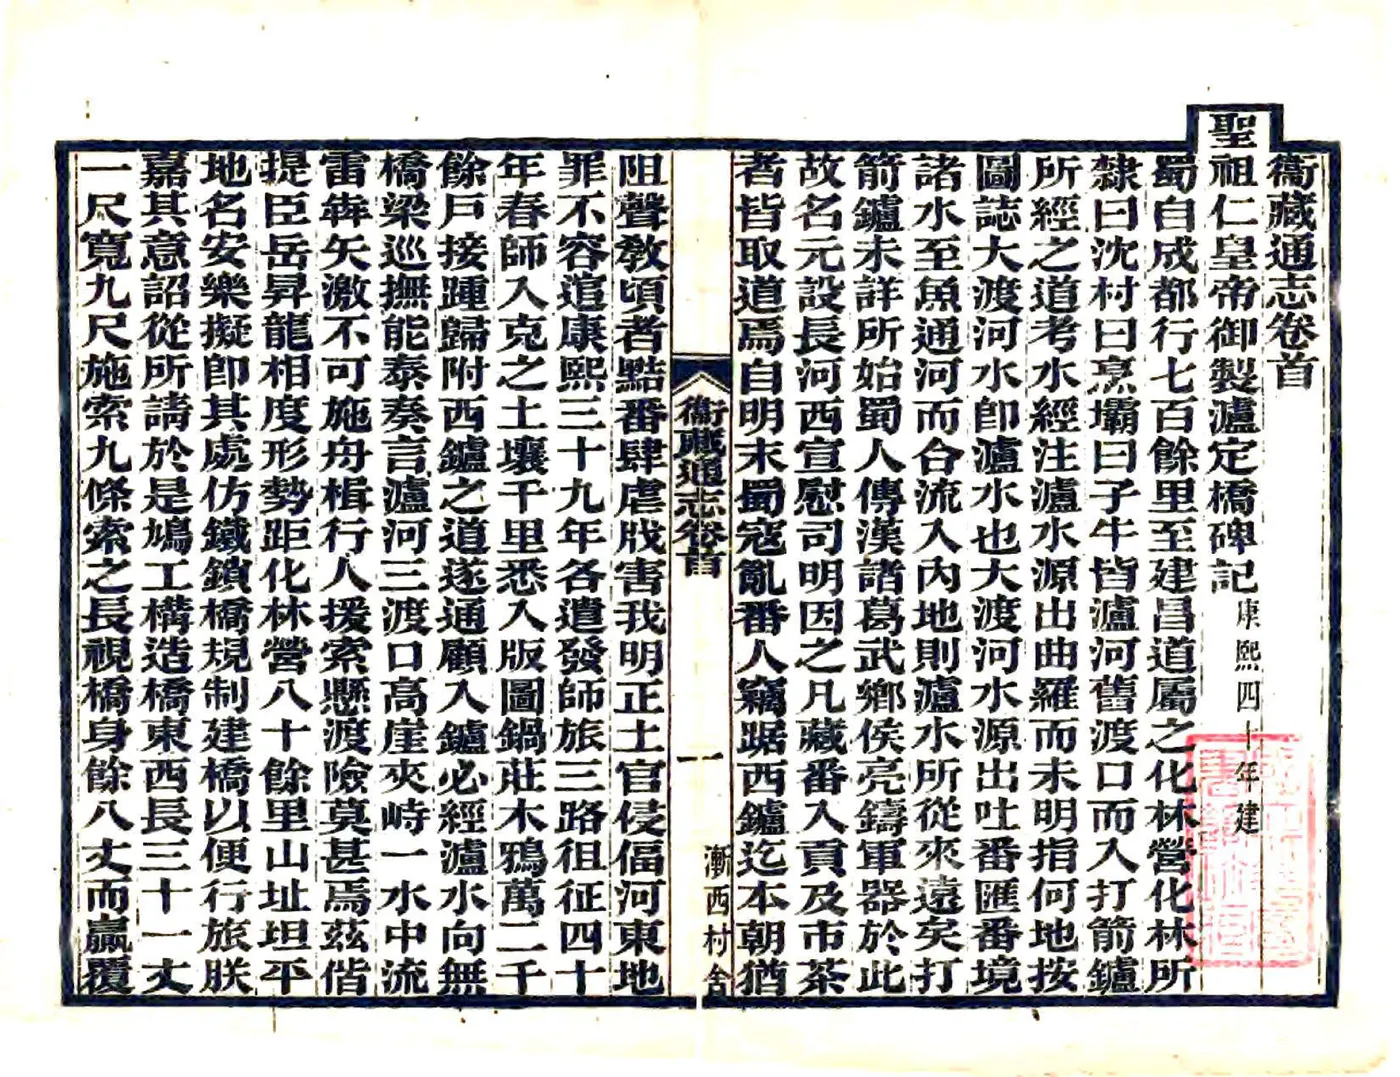 衞藏通志卷首
聖祖仁皇帝御製瀘定橋碑記 康熙四十年建
蜀自成都行七百餘里至建昌道屬之化林營化林所
隸曰沈村曰烹壩曰子牛皆瀘河舊渡口而入打箭鑪
所經之道考水經注瀘水源出曲羅而未明指何地按
圖誌大渡河水卽瀘水也大渡河水源出吐番匯番境
諸水至魚通河而合流入內地則瀘水所從來遠矣打
箭鑪未詳所始蜀人傳漢諸葛武鄉侯亮鑄軍器於此
故名元設長河西宣慰司明因之凡藏番入貢及市茶
者皆取道焉自明末蜀寇亂番人竊踞西鑪迄本朝猶
衞藏通志卷首
一
漸西村舍
阻聲敎頃者黠番肆虐戕害我明正土官侵偪河東地
罪不容逭康熙三十九年各遣發師旅三路徂征四十
年春師入克之土壤千里悉入版圖鍋莊木鴉萬二千
餘戶接踵歸附西鑪之道遂通顧入鑪必經瀘水向無
橋梁巡撫能泰奏言瀘河三渡口高崖夾峙一水中流
雷犇矢激不可施舟楫行人援索懸渡險莫甚焉茲偕
提臣岳昇龍相度形勢距化林營八十餘里山址坦平
地名安樂擬卽其處仿鐵鎖橋規制建橋以便行旅朕
嘉其意詔從所請於是鳩工構造橋東西長三十一丈
一尺寬九尺施索九條索之長視橋身餘八丈而贏覆